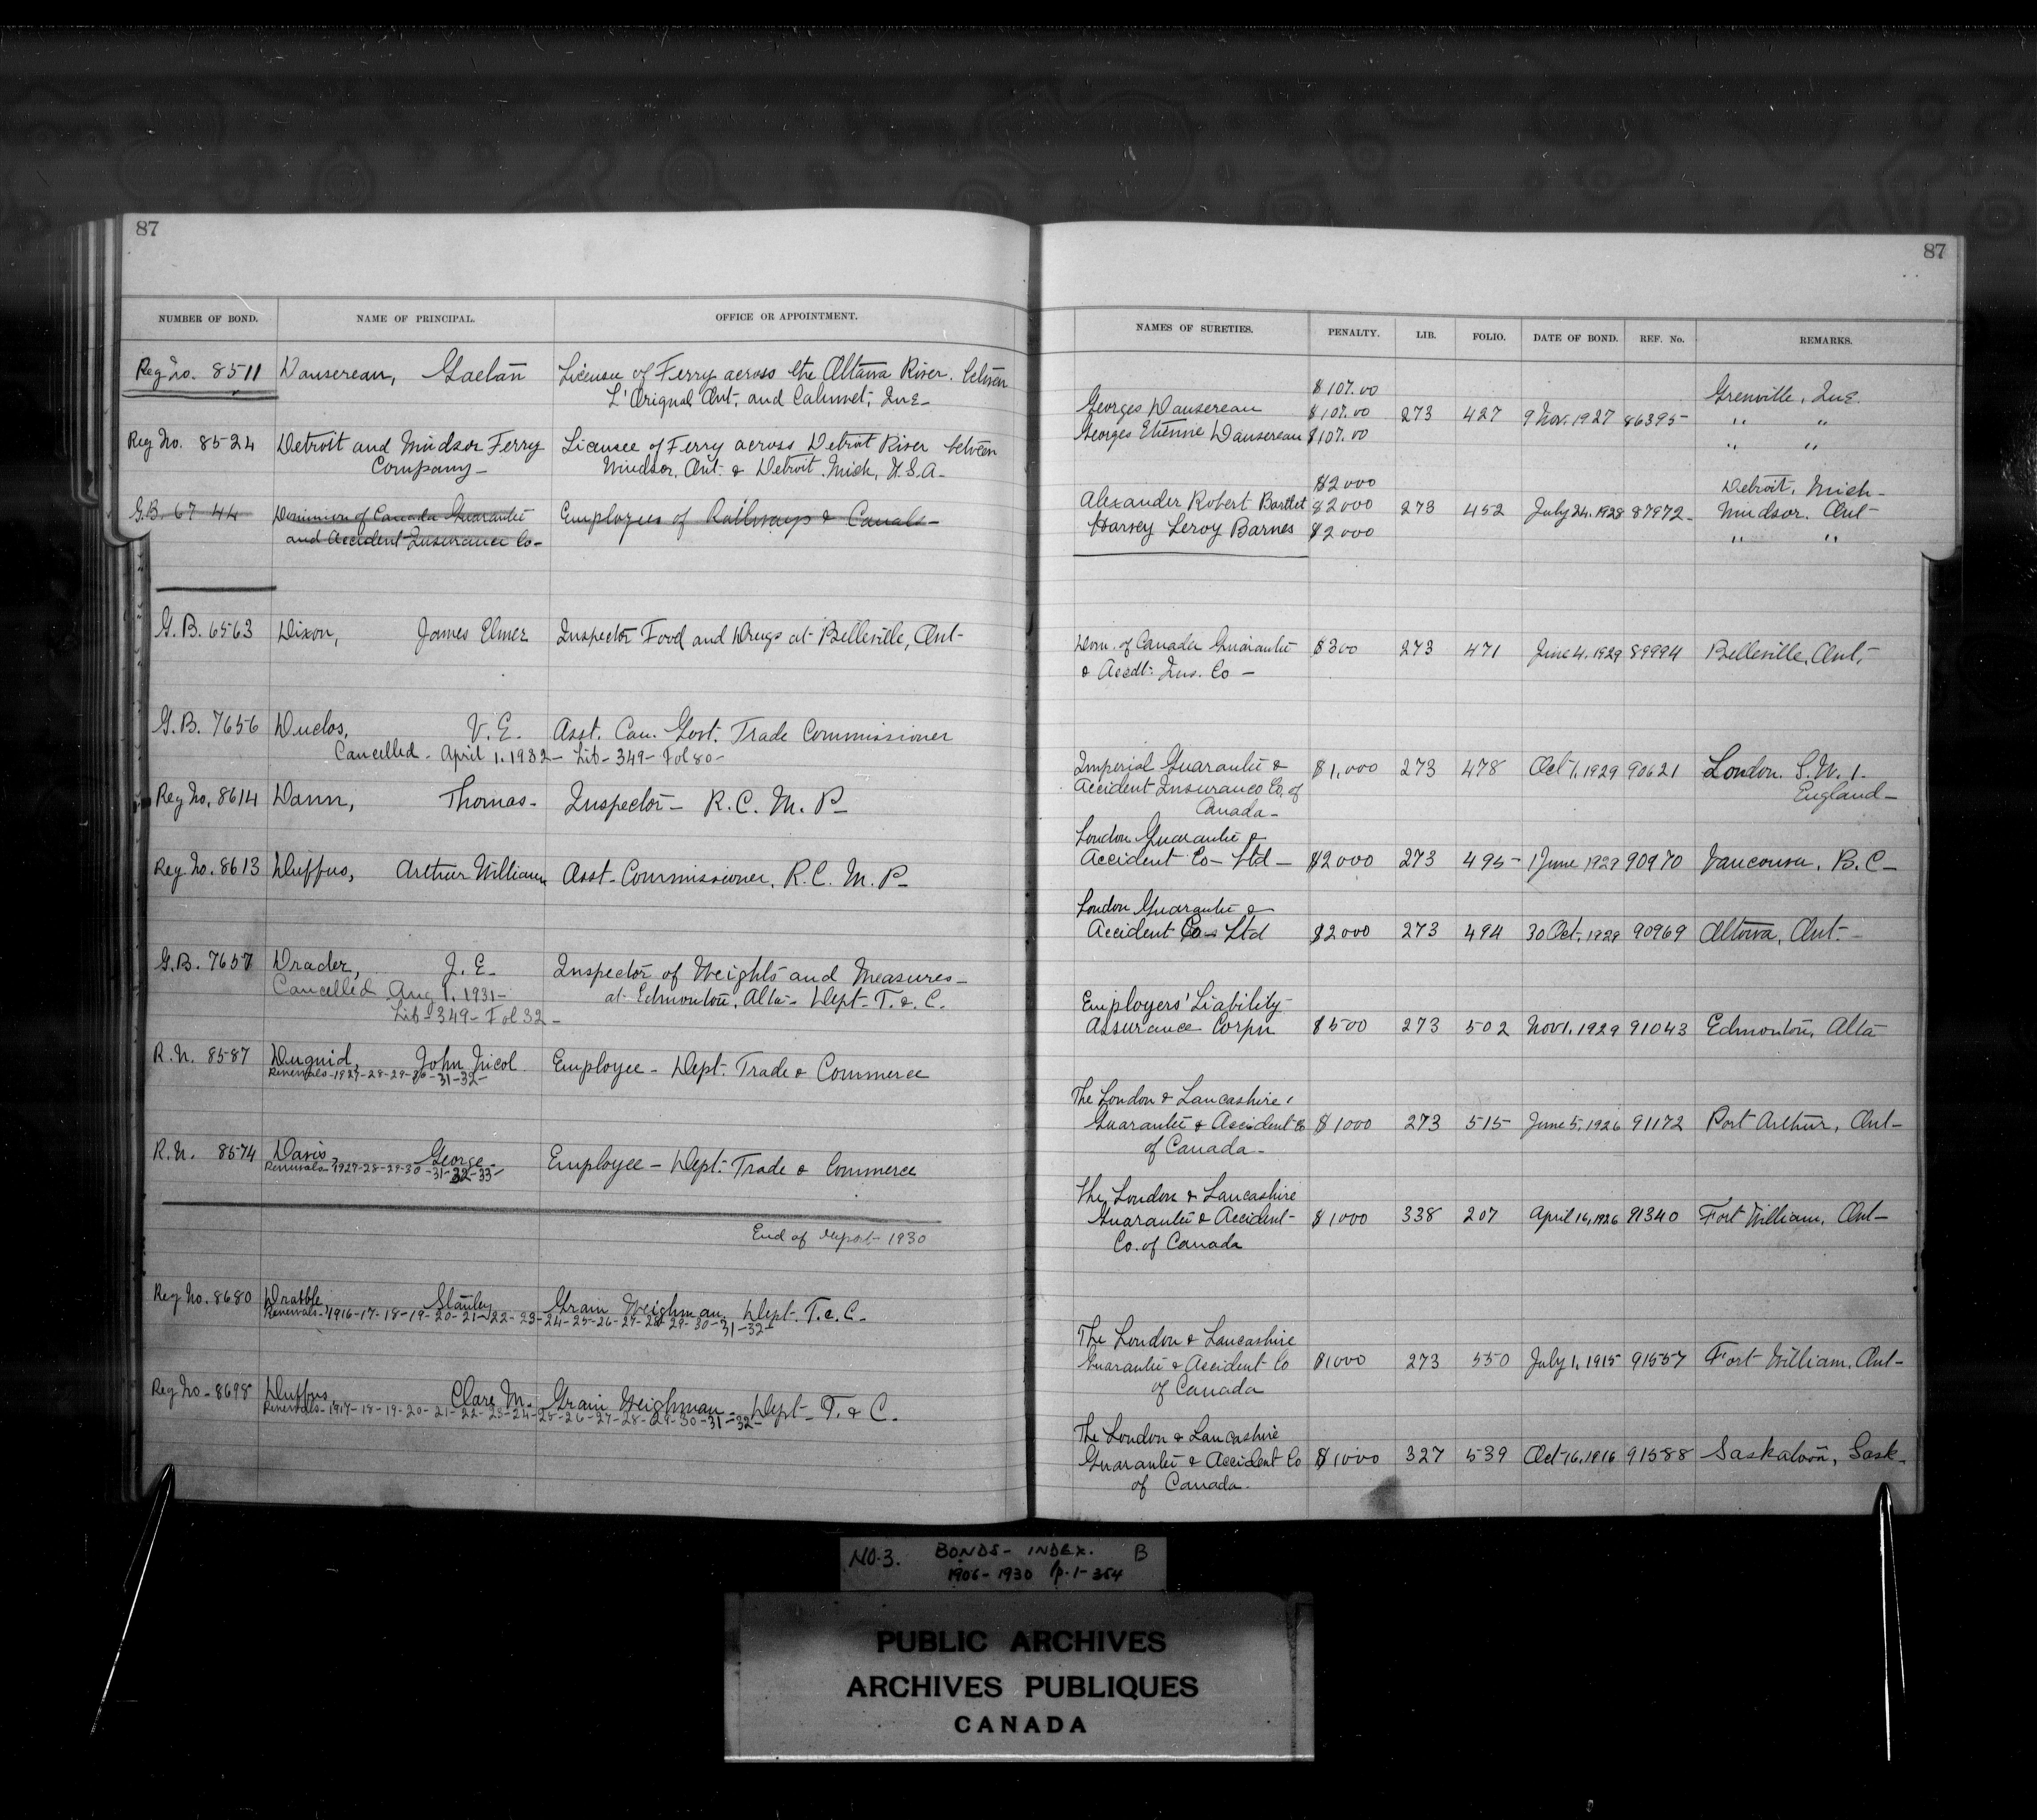 87
NUMBER OF BOND. NAME OF PRINCIPAL. OFFICE OR APPOINTMENT.
Reg no. 8511 Dansereau, Gaetan Licensee of Ferry across the Ottawa River. between
L'Orignal Ont, and Calumet, Que-
Reg No. 8524 Detroit and Windsor Ferry Licensee of Ferry across Detroit River between
Company- Windsor, Ont. & Detroit. Mich, U.S.A-
G.B. 6744 Dominion of Canada Guarantee Employees of Railways & Canals-
and Accident Insurance Co-
G.B. 6563 Dixon, James Elmer Inspector Food and Drugs at Belleville, Ont-
G.B. 7656 Duclos, V.E. Asst. Can. Govt. Trade Commissioner
Cancelled- April 1.1932- Lib-349-Fol 80-
Reg No, 8614 Dann, Thomas- Inspector- R.C.M.P-
Reg No. 8613 Duffus, Arthur William Asst-Commissioner, R.C.M.P-
G.B. 7657 Drader, J.E- Inspector of Weights and Measures-
Cancelled Aug 1.1931- at Edmonton, Alta- Dept-T.&C.
Lib-349-Fol 32-
R.N. 8587 Duguid, John Nicol Employee- Dept. Trade & Commerce
Renewals-1927-28-29-30-31-32-
R.N. 8574 Davis, George- Employee- Dept. Trade & Commerce
Renewals 1927-28-29-30-31-32-33-
End of report-1930
Reg No. 8680 Drabble, Stanley Grain Weighman, Dept-T.&C-
Renewals-1916-17-18-19-20-21-22-23-24-25-26-27-28-29-30-31-32-
Reg No-8698 Duffus, Clare M- Grain Weighman- Dept-T.&C.
Renewals-1917-18-19-20-21-22-23-24-25-26-27-28-29-30-31-32-
87
NAMES OF SURETIES. PENALTY. LIB. FOLIO. DATE OF BOND. REF. No. REMARKS.
$107.00 Grenville, Que.
Georges Dansereau $107.00 273 427 9 Nov. 1927 86395- " "
Georges Etienne Dansereau $107.00 " "
$2000 Detroit, Mich-
Alexander Robert Bartlet $2000 273 452 July 24.1928 87972- Windsor. Ont-
Harvey Leroy Barnes $2000 " "
Dom. of Canada Guarantee $300 273 471 June 4.1929 89994 Belleville, Ont,
& Accdt. Ins. Co-
Imperial Guarantee & $1,000 273 478 Oct 1,1929 90621 London. S.W.1.
Accident Insurance Co. of England-
Canada-
London Guarantee &
Accident Co- Ltd- $2000 273 495- 1 June 1929 90970 Vancouver, B.C-
London Guarantee &
Accident Co- Ltd $2000 273 494 30 Oct, 1929 90969 Ottawa, Ont.-
Employers' Liability
Assurance Corpn $500 273 502 Nov 1.1929 91043 Edmonton, Alta
The London & Lancashire
Guarantee & Accident Co $1000 273 515- June 5,1926 91172 Port Arthur, Ont-
of Canada-
The London & Lancashire
Guarantee & Accident- $1000 338 207 April 16,1926 91340 Fort William, Ont-
Co. of Canada
The London & Lancashire
Guarantee & Accident Co $1000 273 550 July 1,1915 91557 Fort William, Ont-
of Canada
The London & Lancashire
Guarantee & Accident Co $1000 327 539 Oct 16,1916 91588 Saskatoon, Sask-
of Canada.
NO.3. BONDS- INDEX. B
1906-1930 p.1-354
PUBLIC ARCHIVES
ARCHIVES PUBLIQUES
CANADA